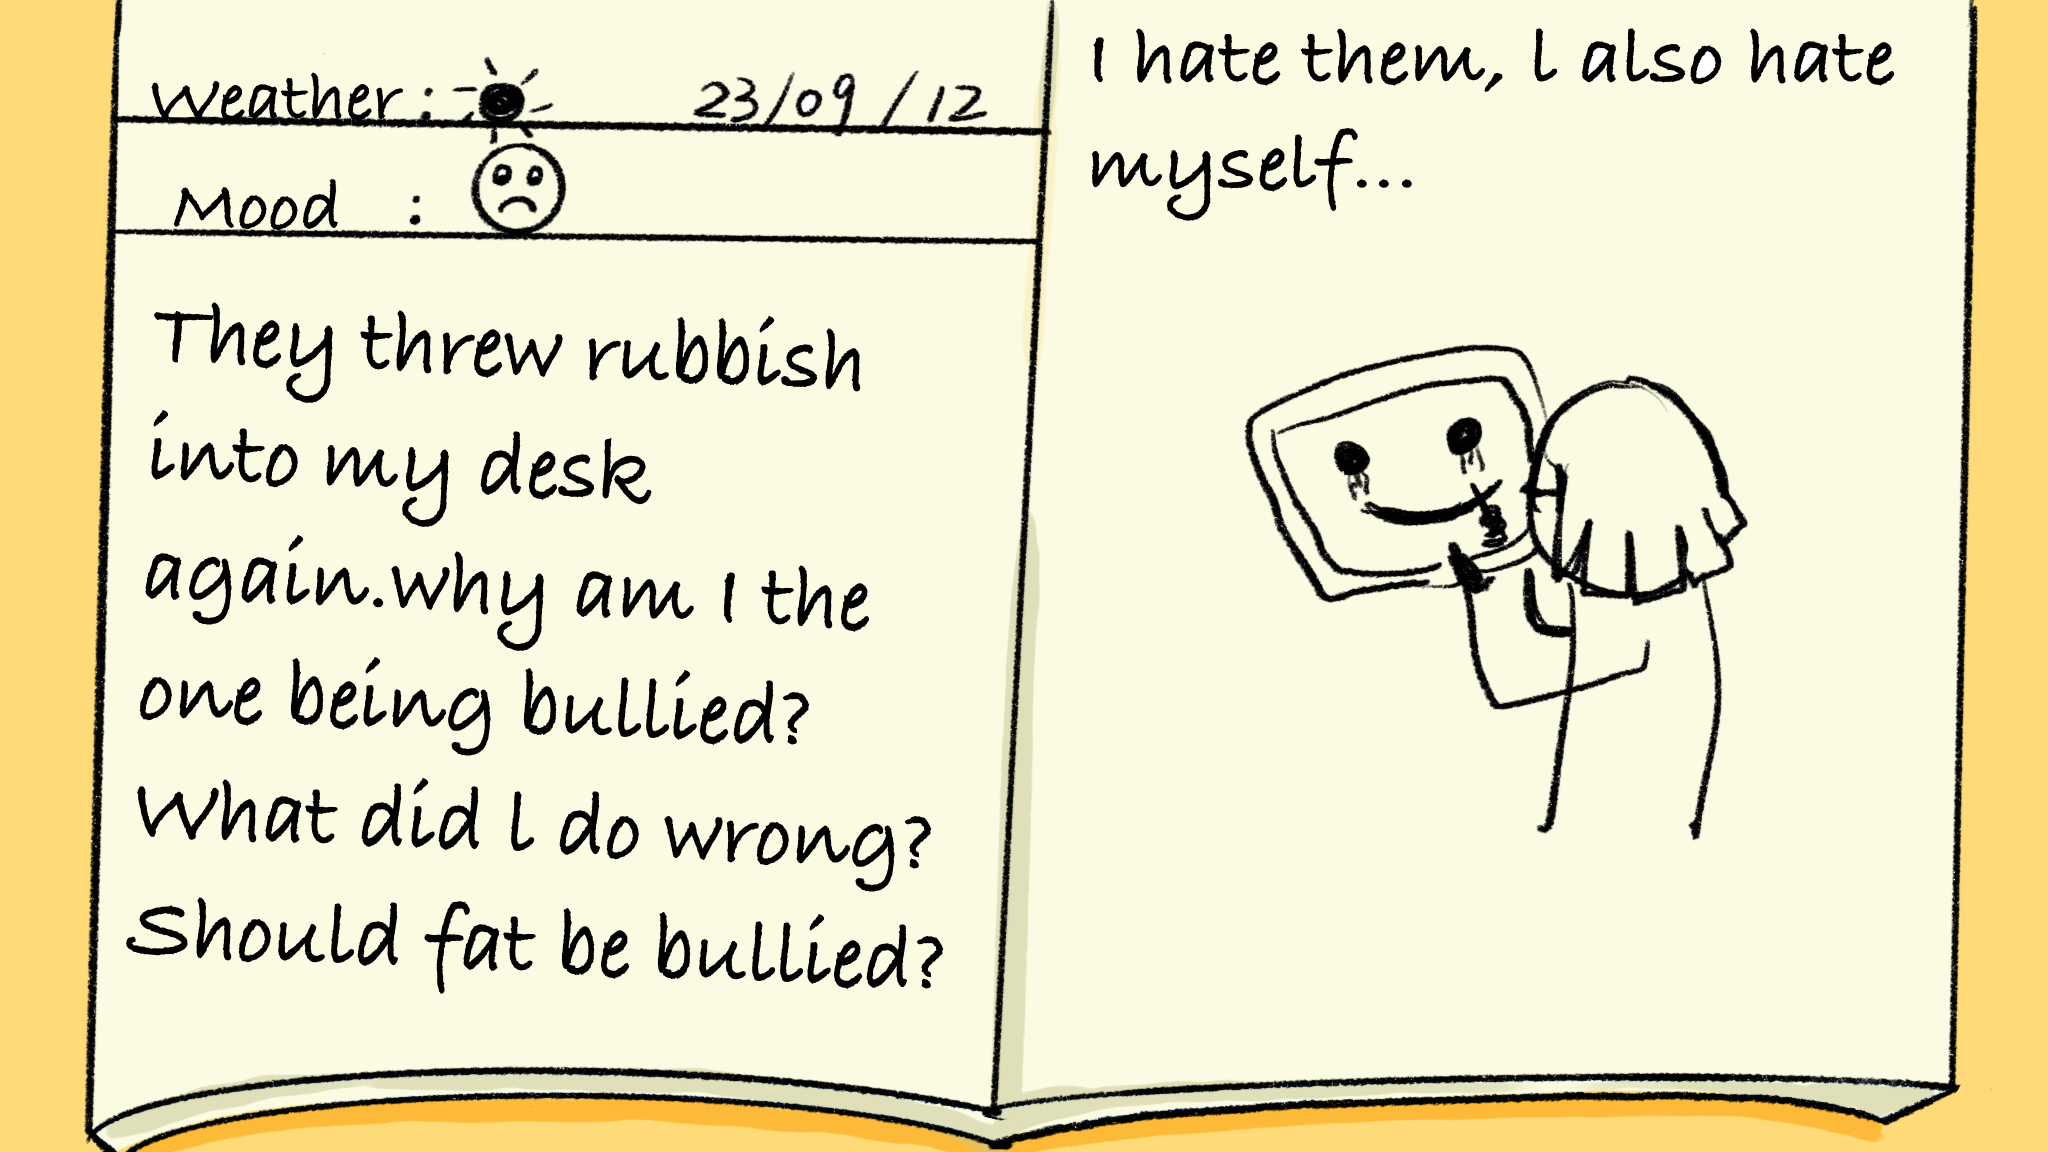 Weather :
23/09/12
Mood :
They threw rubbish
into my desk
again.why am I the
one being bullied?
What did l do wrong?
Should fat be bullied?
I hate them, l also hate
myself...